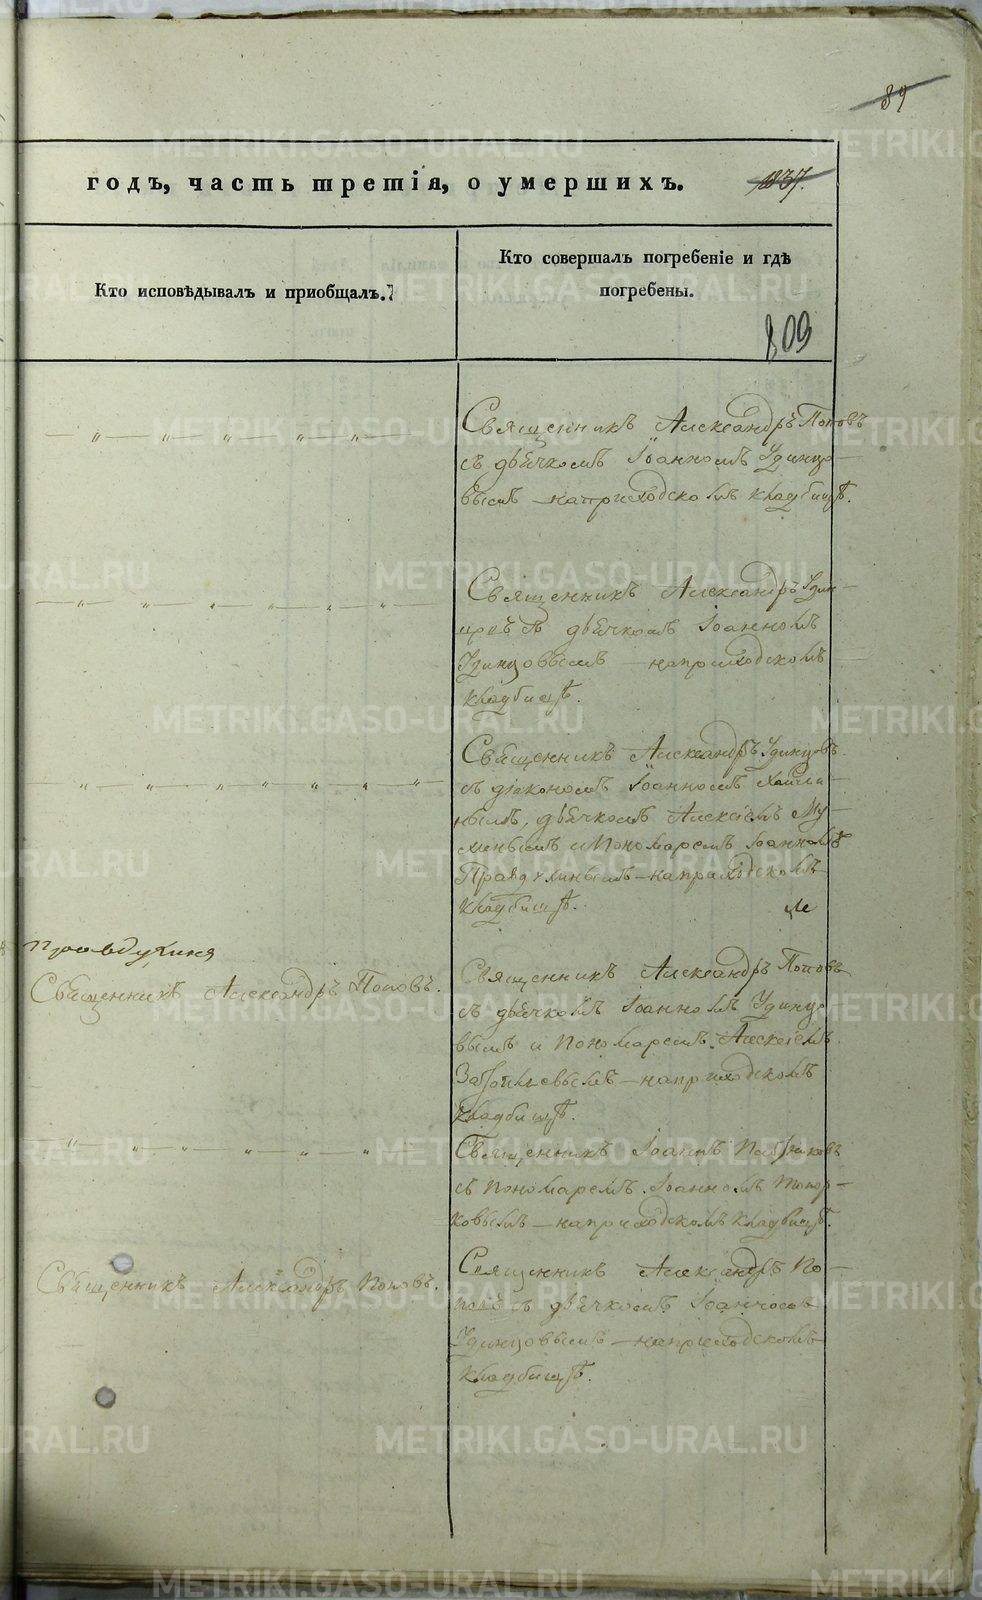 89
годъ, часть третія, о умершихъ.
1837.
Кто исповѣдывалъ и приобщалъ.
Кто совершалъ погребеніе и гдѣ
погребены.
809
Священникъ Александръ Поповъ
съ дьячкомъ Іоанномъ Удинцо-
вымъ на приходскомъ кладбищѣ.
Священникъ Александръ Удин-
цовъ съ дьячкомъ Іоанномъ
Удинцовымъ на приходскомъ
кладбищѣ.
Священникъ Александръ Удинцовъ
съ діакономъ Іоанномъ
нымъ, дьячкомъ Алексіемъ
и Пономаремъ Іоанномъ
Правдухинымъ на приходскомъ
кладбищѣ.
Правдухина
Священникъ Александръ Поповъ.
Священникъ Александръ Поповъ
съ дьячкомъ Іоанномъ Удинцо
вымъ и Пономаремъ Алексіемъ
на приходскомъ
кладбищѣ.
Священникъ Іоаннъ
съ Пономаремъ Іоанномъ Топор-
ковымъ на приходскомъ кладбищѣ.
Священникъ Александръ Поповъ.
Священникъ Александръ По-
повъ съ дьячкомъ Іоанномъ
Удинцовымъ на приходскомъ
кладбищѣ.
METRIKI.GASO-URAL.RU